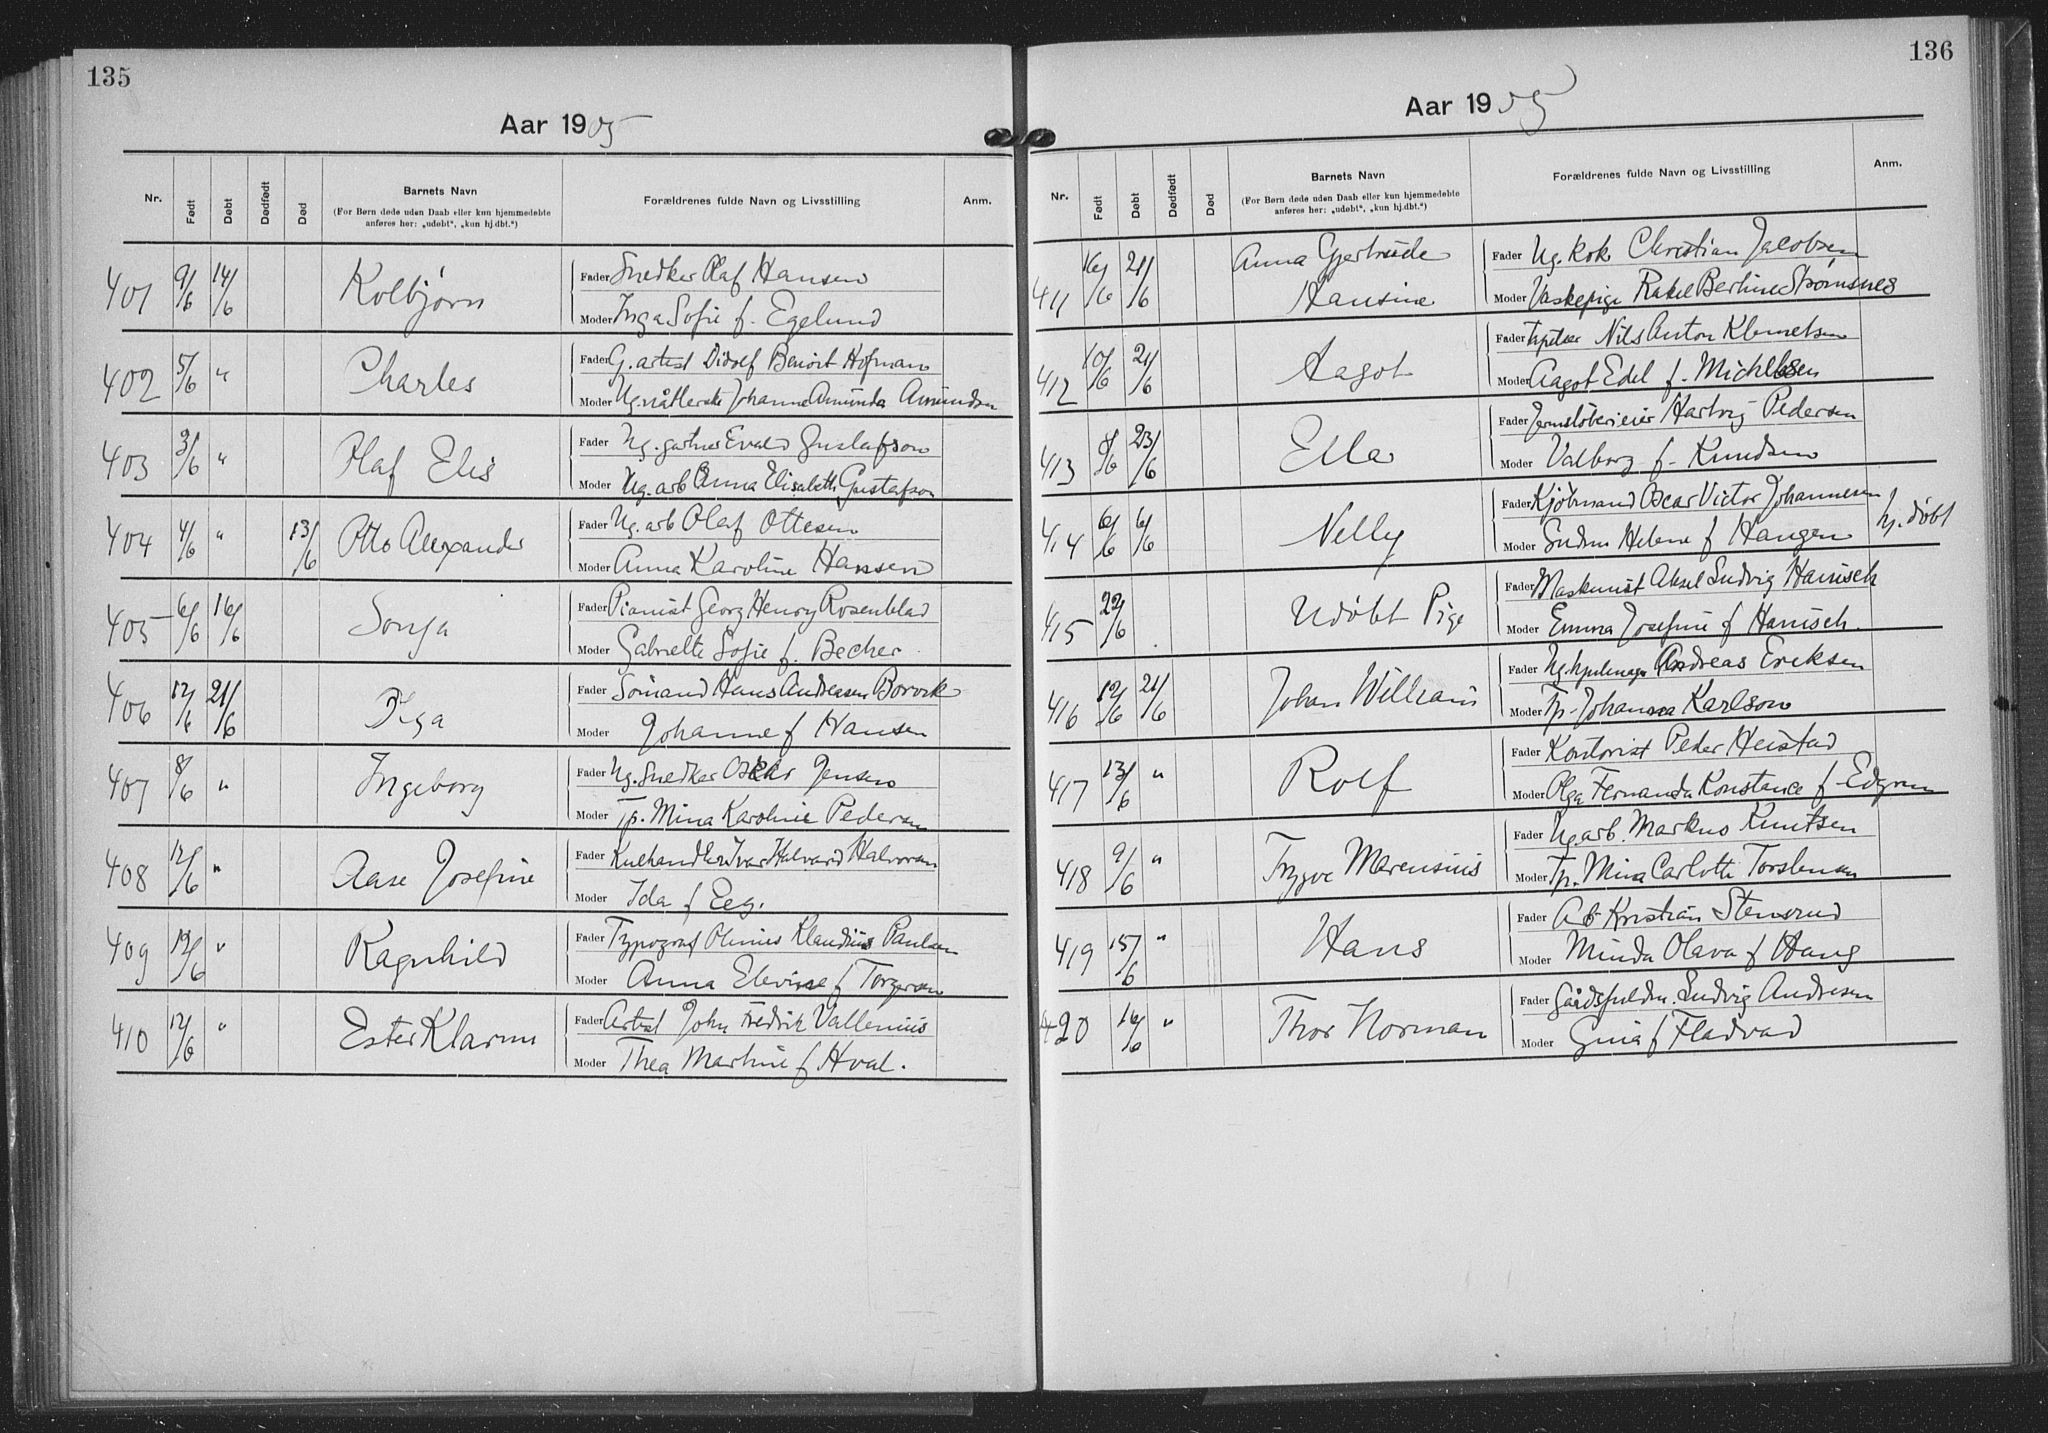 135
Aar 1905
Nr. Født Døbt Dødfødt Død Barnets Navn Forældrenes fulde Navn og Livsstilling Anm.
(For Børn døde uden Daab eller kun hjemmedøbte
anføres her: „udøbt", „kun hj.dbt.")
401 9/6 14/6 Kolbjørn Fader Snedker Olaf Hansen
Moder Inga Sofie f. Egelund
402 5/6 " Charles Fader G. artist Didolf Benoit Hofman
Moder Ug. Johanne Amunda Amundsen
403 3/6 " Olaf Elis Fader Ug. gartner Evald Gustafson
Moder Ug. arb Anna Elisabeth Gustafson
404 4/6 " 13/6 Otto Alexander Fader Ug. arb Olaf Ottesen
Moder Anna Karoline Hansen
405 6/6 16/6 Sonja Fader Pianist Georg Henry Rosenblad
Moder Gabrielle Sofie f. Becher
406 12/6 21/6 Fader Sømand Hans Andreasen Borvik
Moder Johanne f Hansen
407 8/6 " Ingeborg Fader Ug. Snedker Oskar Jensen
Moder Tp. Mina Karoline Pedersen
408 12/6 " Aase Josefine Fader Kulhandler Ivar Halvard Halvorsen
Moder Ida f Eeg.
409 19/6 " Ragnhild Fader Typograf Olinius Klaudius Paulsen
Moder Anna Elevine f Torgersen
410 12/6 " Ester Klarnn Fader Artist John Fredrik Vallenius
Moder Thea Martine f Hval.
136
Aar 1905
Nr. Født Døbt Dødfødt Død Barnets Navn Forældrenes fulde Navn og Livsstilling Anm.
(For Børn døde uden Daab eller kun hjemmedøbte
anføres her: „udøbt", „kun hj.dbt.")
411 16/6 21/6 Anna Gjertrude Fader Ug. kok Christian Jacobsen
Hansine Moder Vaskepige Rakel Berline Strømsnes
412 10/6 21/6 Aagot Fader Tapetser Nils Anton Klemetsen
Moder Aagot Edel f. Michelsen
413 8/6 23/6 Ella Fader Jernstøberieier Hartvig Pedersen
Moder Valborg f. Knudsen
414 6/6 6/6 Nelly Fader Kjøbmand Oscar Victor Johannesen hj. døbt
Moder Gudrun Helene f Haugen
415 22/6 Udøbt Pige Fader Maskinist Aksel Ludvig Hanisch
Moder Emma Josefine f Hanisch.
416 12/6 21/6 Johan William Fader Ug. Andreas Eriksen
Moder Tp. Johanna Karlson
417 13/6 " Rolf Fader Kontorist Peder Heistad
Moder Olga Fernanda Konstance f Edgren
418 9/6 " Trygve Marensius Fader Ug. arb. Markus Knutsen
Moder Tp. Mina Carlotte Torstensen
419 15/6 " Hans Fader Arb Kristian Stensrud
Moder Minda Olava f Haug
420 16/6 " Thor Norman Fader Gaardsfuldm. Ludvig Andresen
Moder Gina f Fladvad